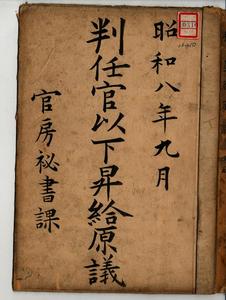 昭和八年九月
判任官以下昇給原議
官房祕書課